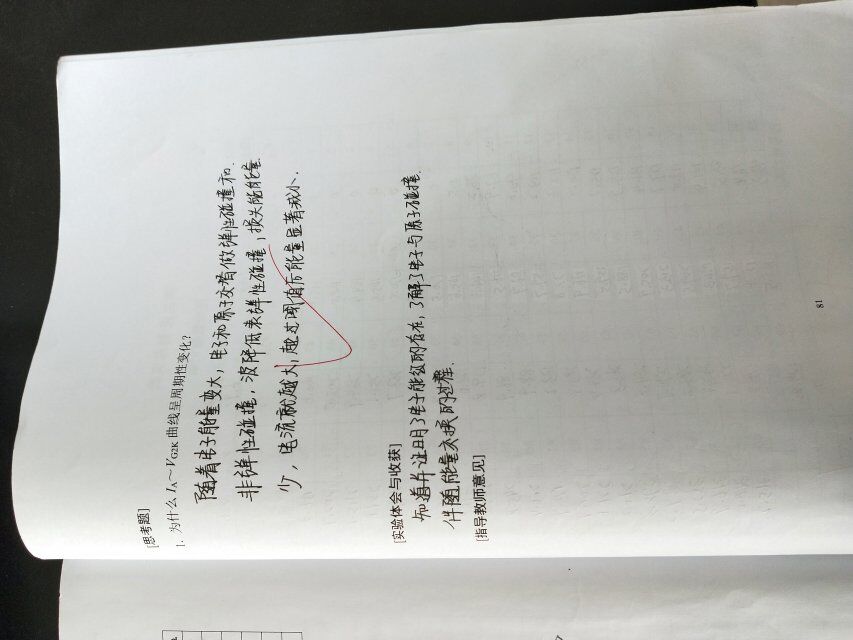 [思考题]
1. 为什么 IA～VG2K 曲线呈周期性变化?
随着电子能量变大，电子和原子交替做弹性碰撞和
非弹性碰撞，波降低表弹性碰撞，损失能能量
少，电流就越大，越过阈值后能量显著减小.
[实验体会与收获]
知道并证明了电子能级的存在，了解了电子与原子碰撞
伴随能量交换的过程.
[指导教师意见]
81